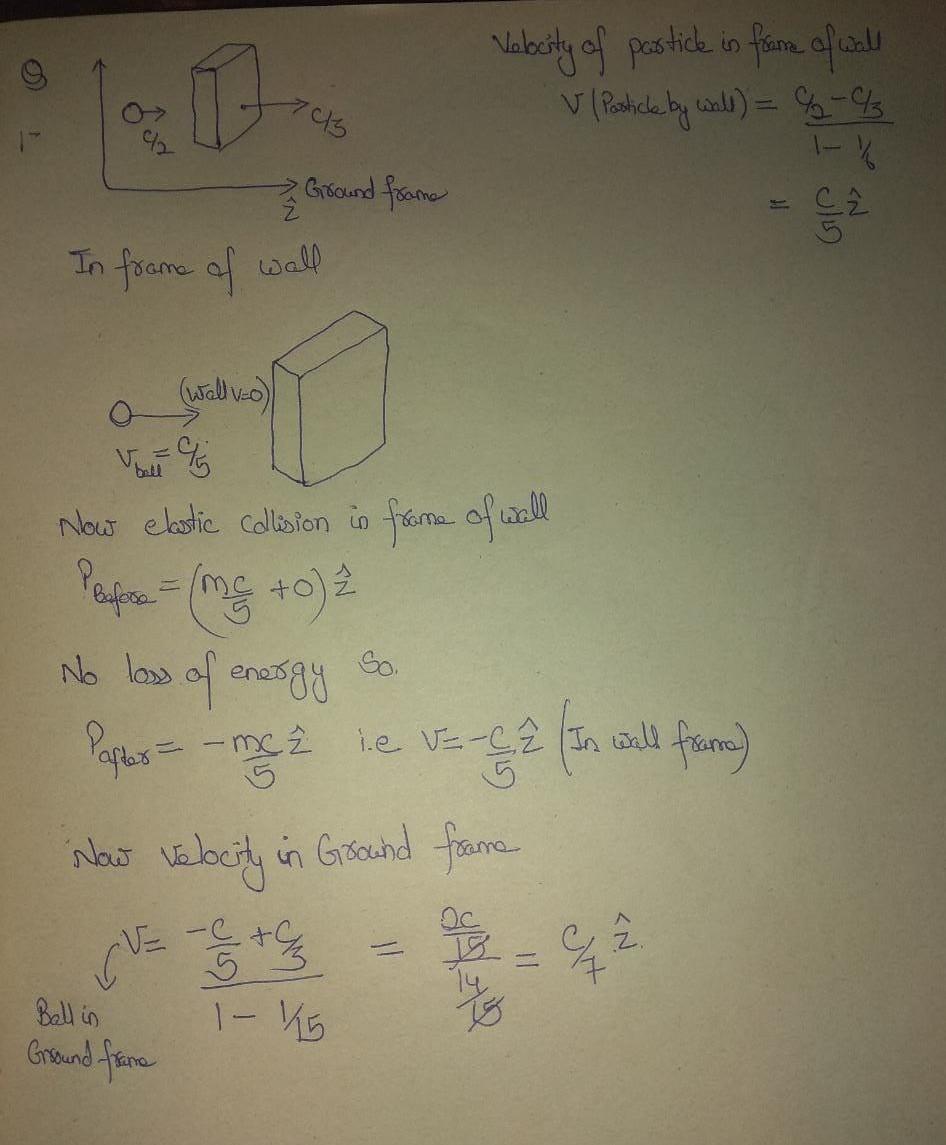 Q
1-
C/2
C/3
ẑ
Ground frame
Velocity of particle in frame of wall
V (Particle by wall) = (C/2 - C/3) / (1 - 1/6)
= C/5 ẑ
In frame of wall
(Wall v=0)
V_ball = C/5
Now elastic collision in frame of wall
P_Before = (mc/5 + 0) ẑ
No loss of energy So.
P_after = - mc/5 ẑ i.e V = -C/5 ẑ (In wall frame)
Now velocity in Ground frame
V = (-C/5 + C/3) / (1 - 1/15) = (2C/15) / (14/15) = C/7 ẑ.
Ball in
Ground frame